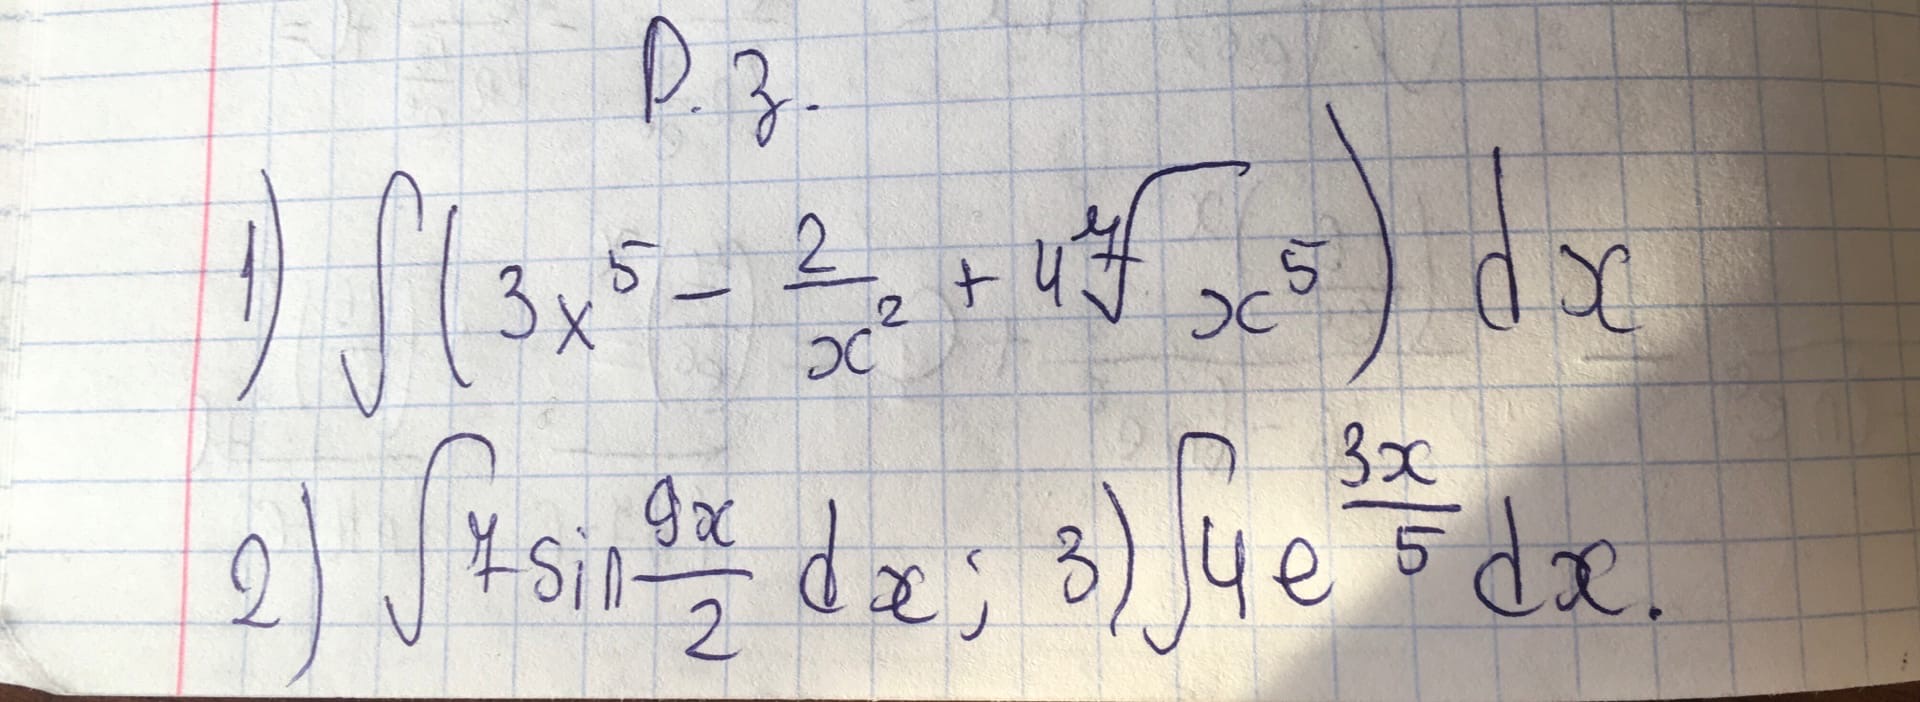 Р. з.
1) ∫(3x⁵ − 2/x² + 4⁷√x⁵) dx
2) ∫7sin 9x/2 dx; 3) ∫4e^(3x/5) dx.